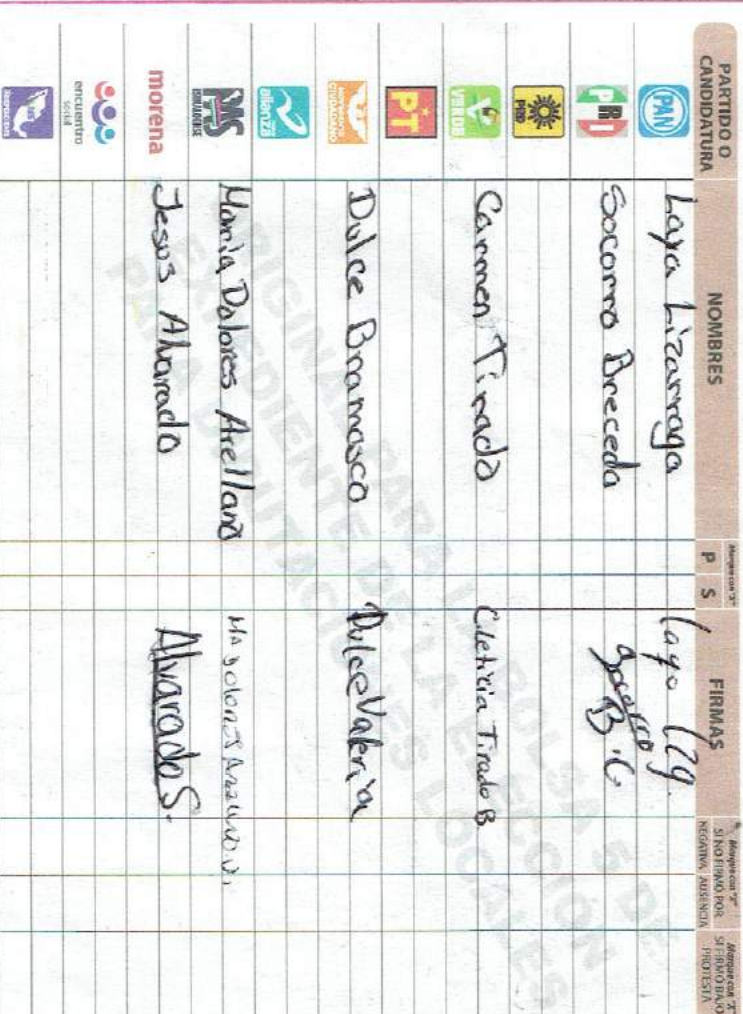 PARTIDO O CANDIDATURA
NOMBRES
Marque con "X"
P S
FIRMAS
Marque con "X" SI NO FIRMÓ POR
NEGATIVA AUSENCIA
Marque con "X" SI FIRMÓ BAJO PROTESTA
PAN
Laya Lizarraga
PRI
Socorro Breceda
B.C
PRD
VERDE
Carmen Tirado
C Leticia Tirado B
PT
MOVIMIENTO CIUDADANO
Dulce Bramasco
Dulce Valeria
nueva alianza
PAS
SINALOENSE
Maria Dolores Arellano
morena
Jesus Alvarado
Alvarado S.
encuentro social
ORIGINAL PARA LA BOLSA 5 DE
EXPEDIENTE DE LA ELECCIÓN
PARA DIPUTACIONES LOCALES